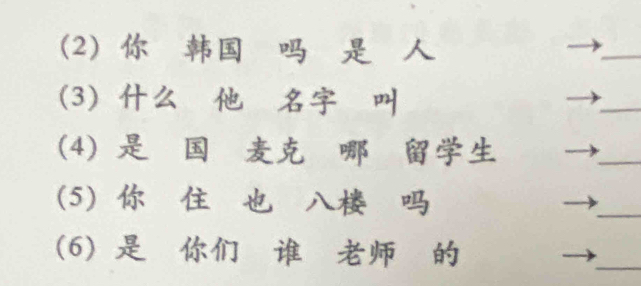 (2) 你 韩国 吗 是 人 →
(3) 什么 他 名字 叫 →
(4) 是 国 麦克 哪 留学生 →
(5) 你 住 也 八楼 吗 →
(6) 是 你们 谁 老师 的 →